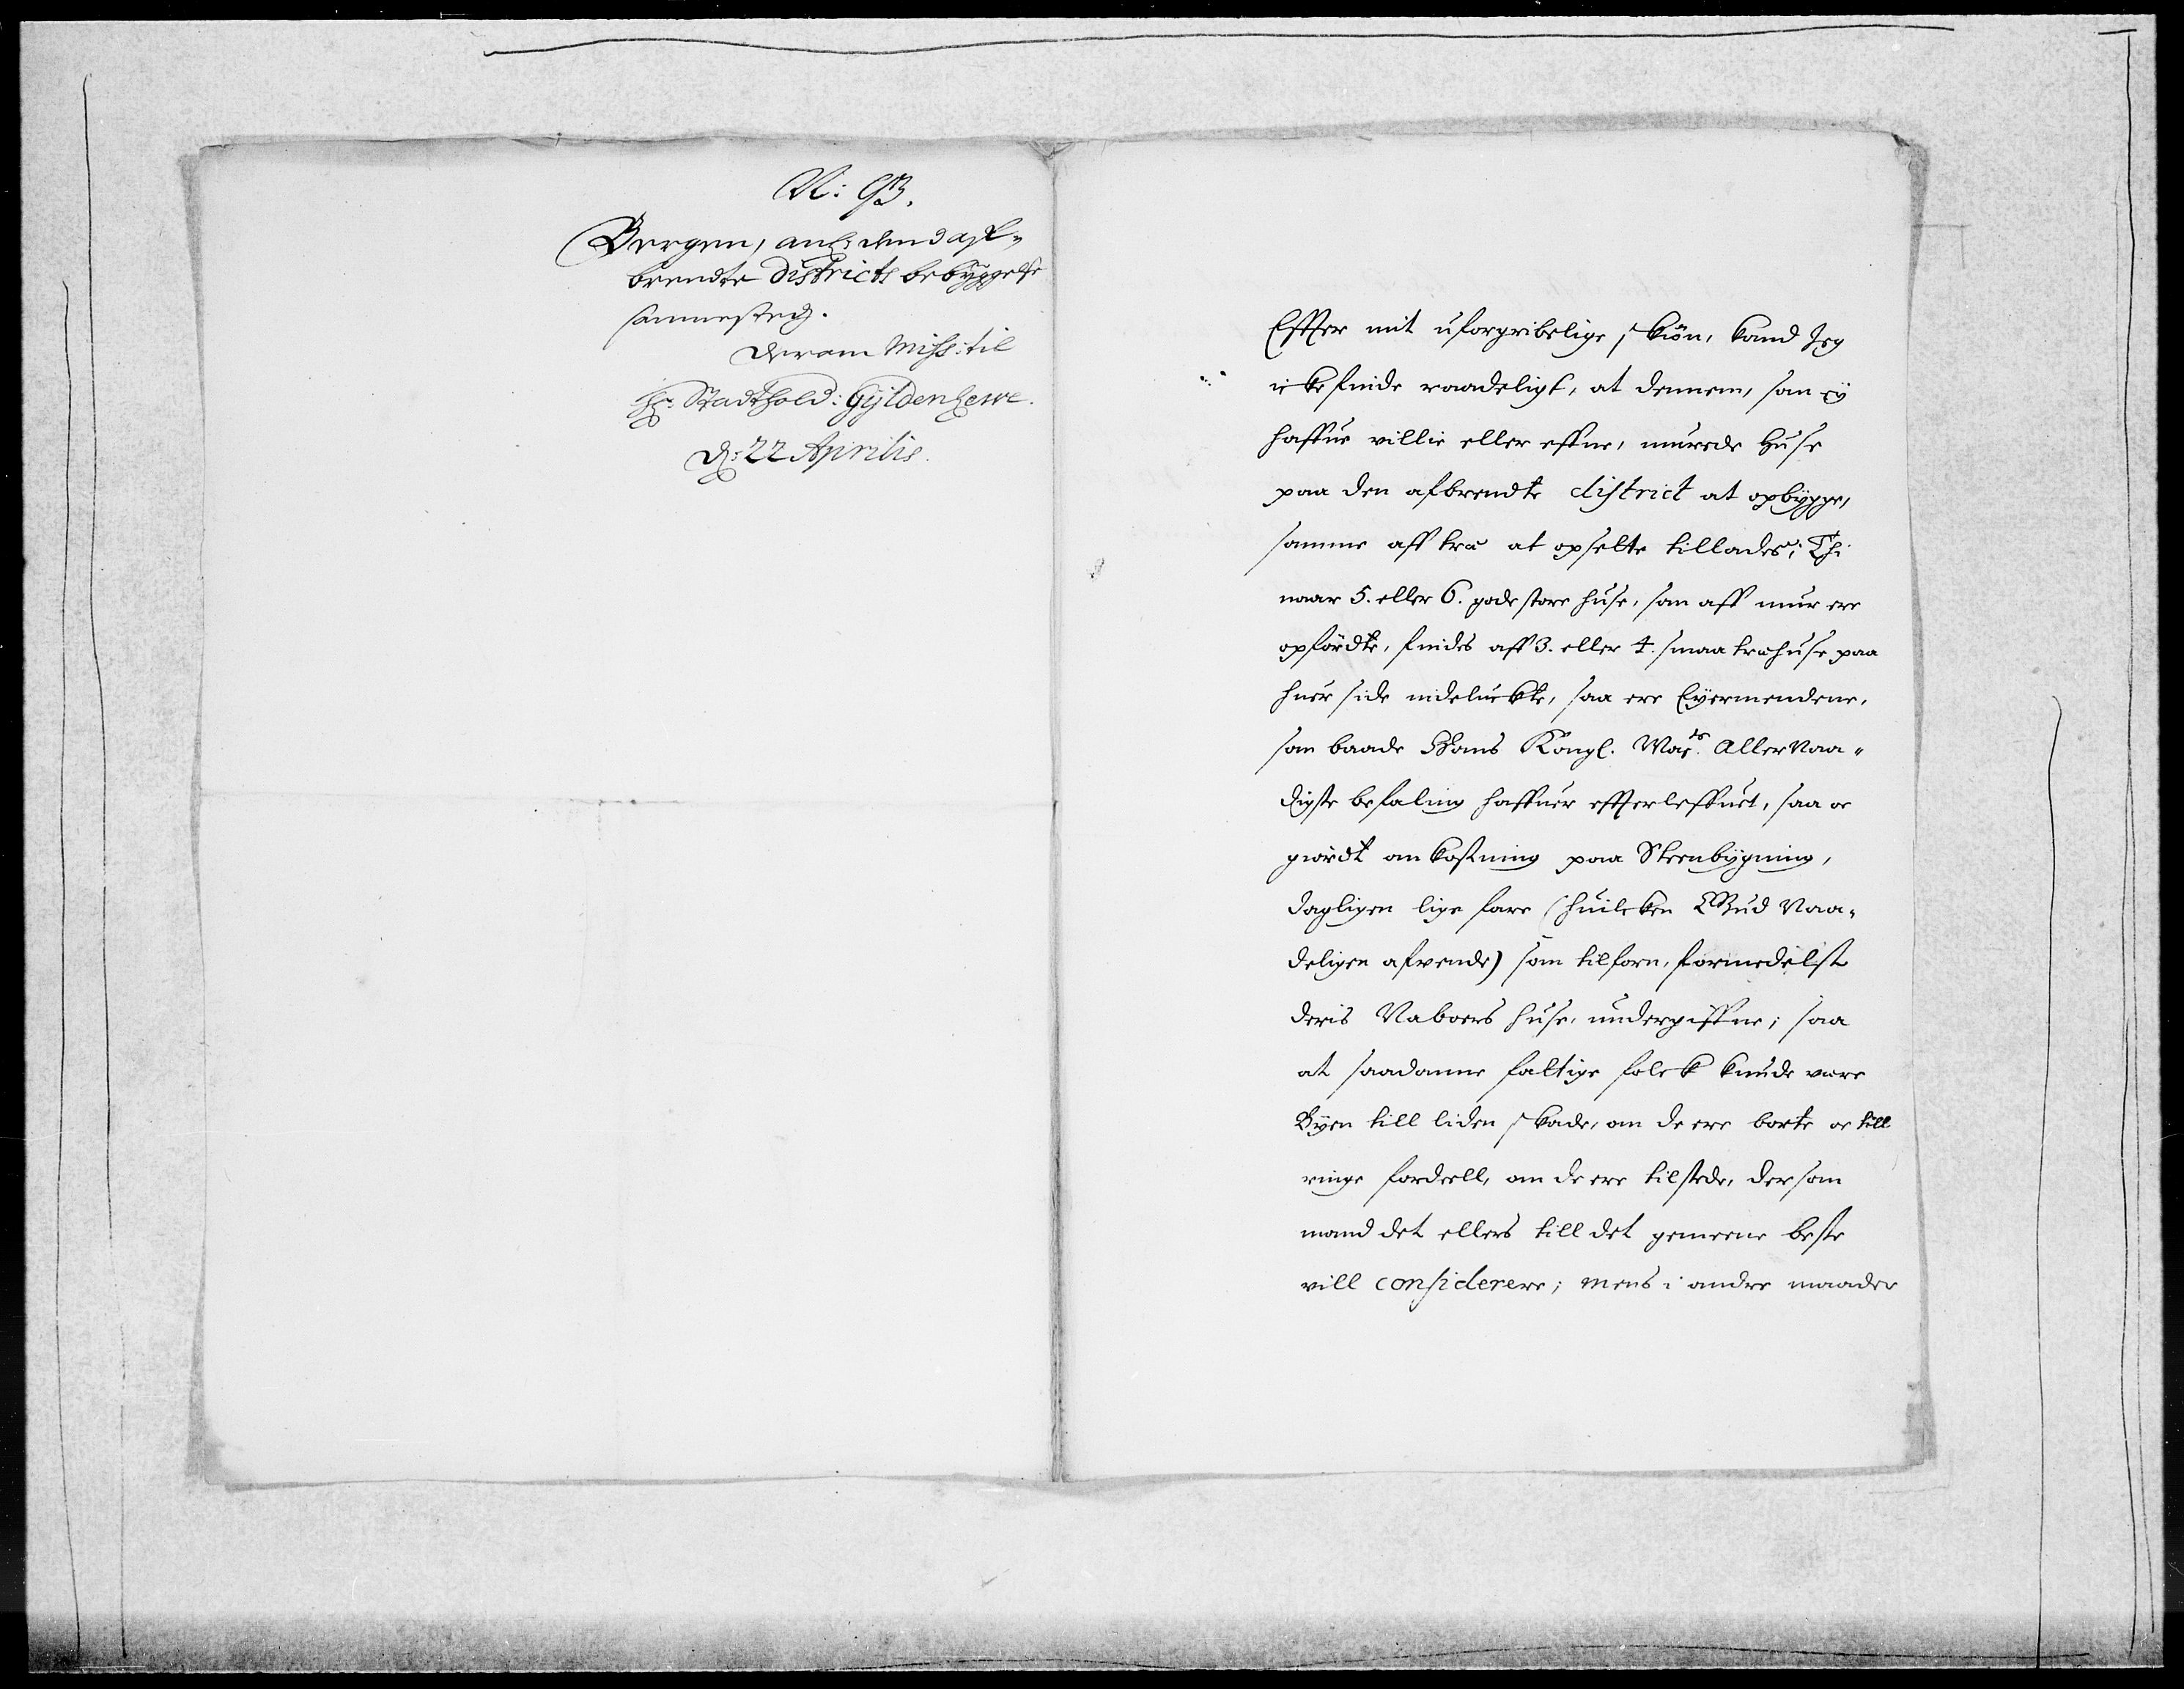 N: 93.
Bergen, anl: dend af-
brendte Districts bebyggelse
sammesteds.
derom Miss: til
Hr. Stadthold: Gyldenlewe.
d: 22 Aprilis.
Effter mit uforgribelige skiön, kand Jeg
icke finde raadeligt, at dennem, som ey
haffue villie eller effne, murede Huse
paa den afbrendte district at opbygge,
samme aff træ at opsette tillades; Thi
naar 5. eller 6. gode store huse, som aff mur ere
opfördte, findes aff 3. eller 4. smaa træhuse paa
huer side indeluckte, saa ere Eyermendene,
som baade Hans Kongl. Mayts. Allernaa-
digste befaling haffuer effterleffuet, saa oc
giordt omkostning paa Steenbygning,
dagligen lige fare (huilcken Gud Naa-
deligen afvende) som tilforn, formedelst
deris Naboers huse, undergiffne; saa
at saadanne fattige folck kunde være
Byen till liden skade, om de ere borte oc till
ringe fordeell, om de ere tilstede, dersom
mand det ellers till det gemeene beste
vill considerere; mens i andre maader